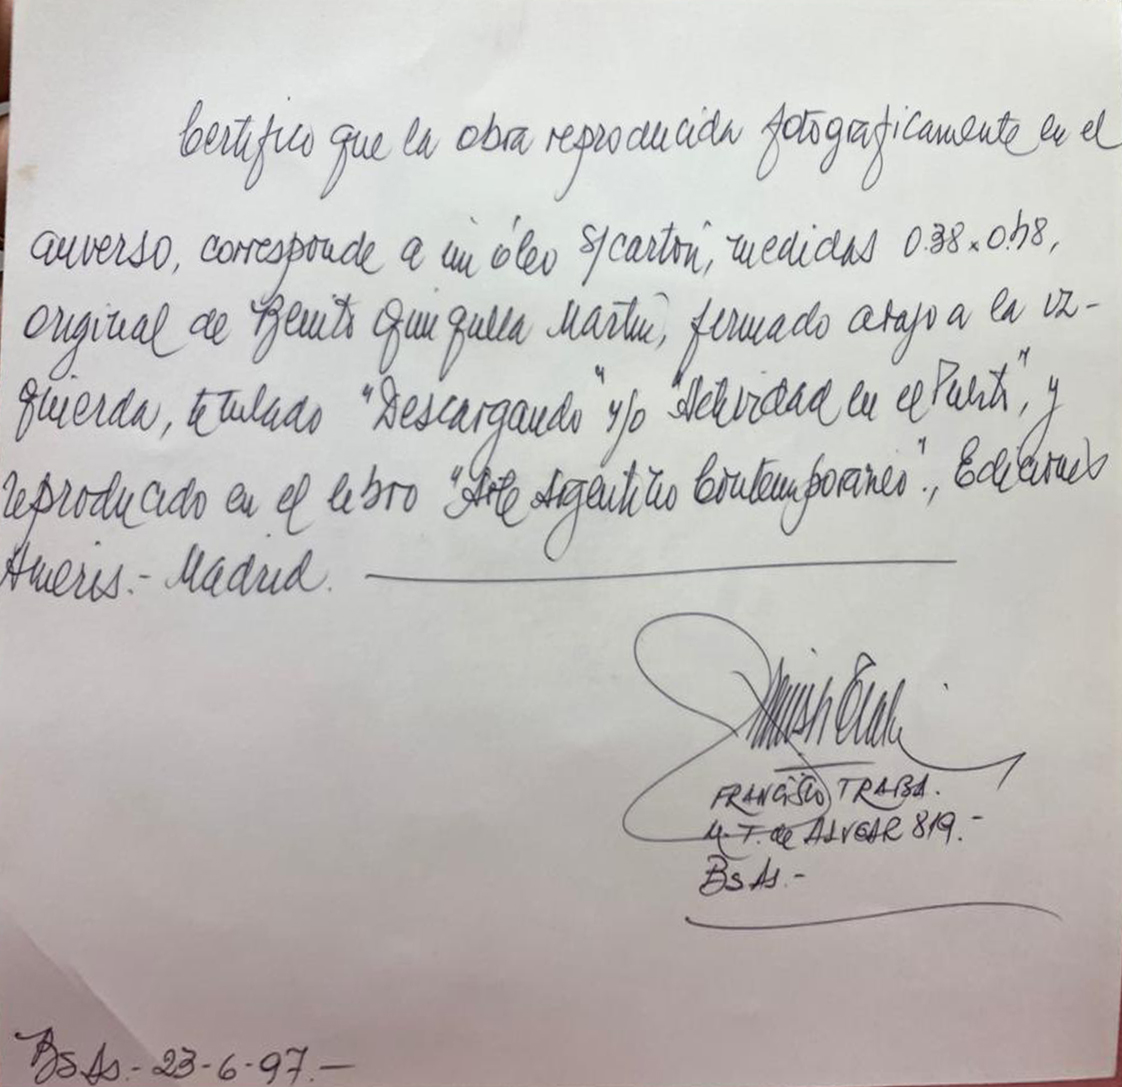 Certifico que la obra reproducida fotograficamente en el
anverso, corresponde a un óleo s/cartón, medidas 0.38 x 0.48,
original de Benito Quinquela Martín, firmado abajo a la iz-
quierda, titulado "Descargando" y/o "Actividad en el Puerto", y
reproducido en el libro "Arte Argentino Contemporáneo"., Ediciones
Ameris.- Madrid.
FRANCISCO TRABA.
M. T. de ALVEAR 819.-
Bs As.-
Bs As.- 23-6-97.-